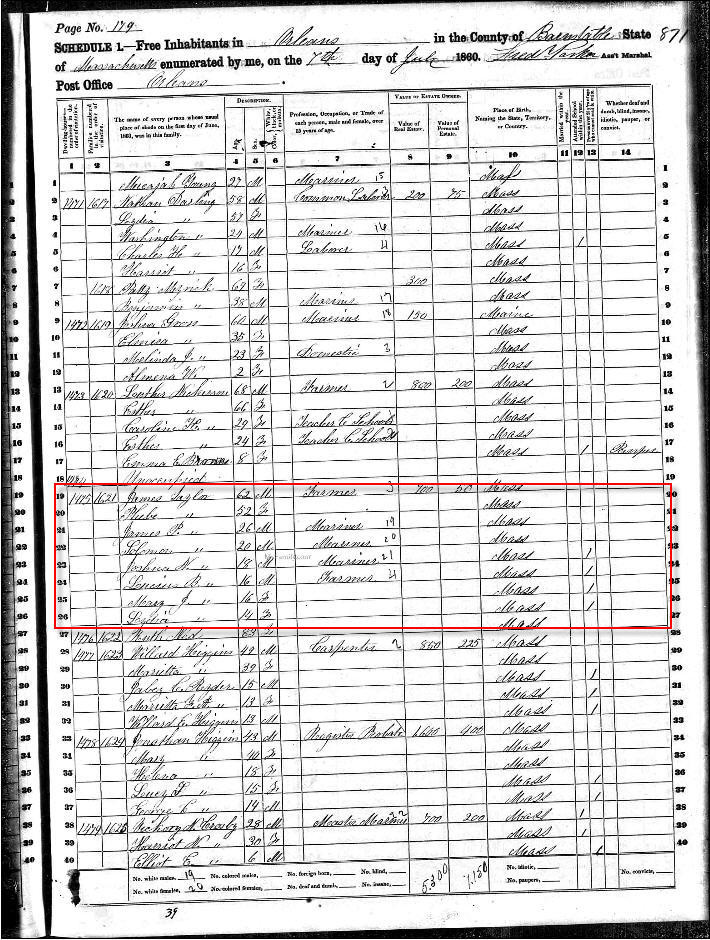 Page No. 179
SCHEDULE 1.—Free Inhabitants in Orleans in the County of Barnstable State 871
of Massachusetts enumerated by me, on the 7th day of July 1860. Ass't Marshal.
Post Office Orleans
DESCRIPTION. VALUE OF ESTATE OWNED.
The name of every person whose usual place of abode on the first day of June, 1860, was in this family.
Profession, Occupation, or Trade of each person, male and female, over 15 years of age.
Value of Real Estate. Value of Personal Estate.
Place of Birth, Naming the State, Territory, or Country.
Whether deaf and dumb, blind, insane, idiotic, pauper, or convict.
1 2 3 4 5 6 7 8 9 10 11 12 13 14
1 Micajah Young 27 M Mariner 15 Mass 1
2 1471 1617 Nathan Darling 58 M Common Laborer 200 75 Mass 2
3 Lydia " 57 F Mass 3
4 Washington " 24 M Mariner 16 Mass 4
5 Charles H. " 17 M Laborer 4 Mass 1 5
6 Harriet " 16 F Mass 6
7 1618 69 F 300 Mass 7
8 Benjamin " 38 M Mariner 17 Mass 8
9 1472 1619 Joshua Gross 60 M Mariner 18 150 Maine 9
10 35 F Mass 10
11 Melinda J. " 23 F Domestic 3 Mass 11
12 Almena W. 2 F Mass 12
13 1473 1620 68 M Farmer 2 800 200 Mass 13
14 Esther " 66 F Mass 14
15 Caroline H. " 29 F Teacher C. School Mass 15
16 Esther " 24 F Teacher C. School Mass 16
17 Emma E. 8 F Mass 1 17
18 1474 Unoccupied
19 1475 1621 James Taylor 62 M Farmer 3 700 50 Mass
20 Phebe " 52 F Mass
21 James P. " 26 M Mariner 19 Mass
22 Solomon " 20 M Mariner 20 Mass
23 Joshua N. " 18 M Mariner 21 Mass 1
24 Lucius B. " 16 M Farmer 4 Mass 1
25 Mary J. " 16 F Mass 1
26 Lydia " 14 F Mass 1
27 1476 1622 Ruth 83 F Mass
28 1477 1623 Willard Higgins 49 M Carpenter 2 850 225 Mass
29 Marietta " 39 F Mass
30 Jabez C. Ryder 15 M Mass 1
31 Marietta " 13 F Mass 1
32 Willard E. Higgins 13 M Mass 1
33 1478 1624 Jonathan Higgins 43 M Register Probate 1600 400 Mass
34 Mary " 40 F Mass
35 Helena " 18 F Mass
36 " 15 F Mass 1
37 George " 14 M Mass 1
38 1479 1625 Crosby 28 M Master Mariner 22 700 200 Mass 1
39 Harriet N. " 30 F Mass 1
40 Elliot E. " 6 M Mass 1
No. white males, 19 No. colored males, No. foreign born, No. blind, 5300 1,150 No. idiotic, No. convict,
No. white females, 20 No. colored females, No. deaf and dumb, No. insane, No. paupers,
39